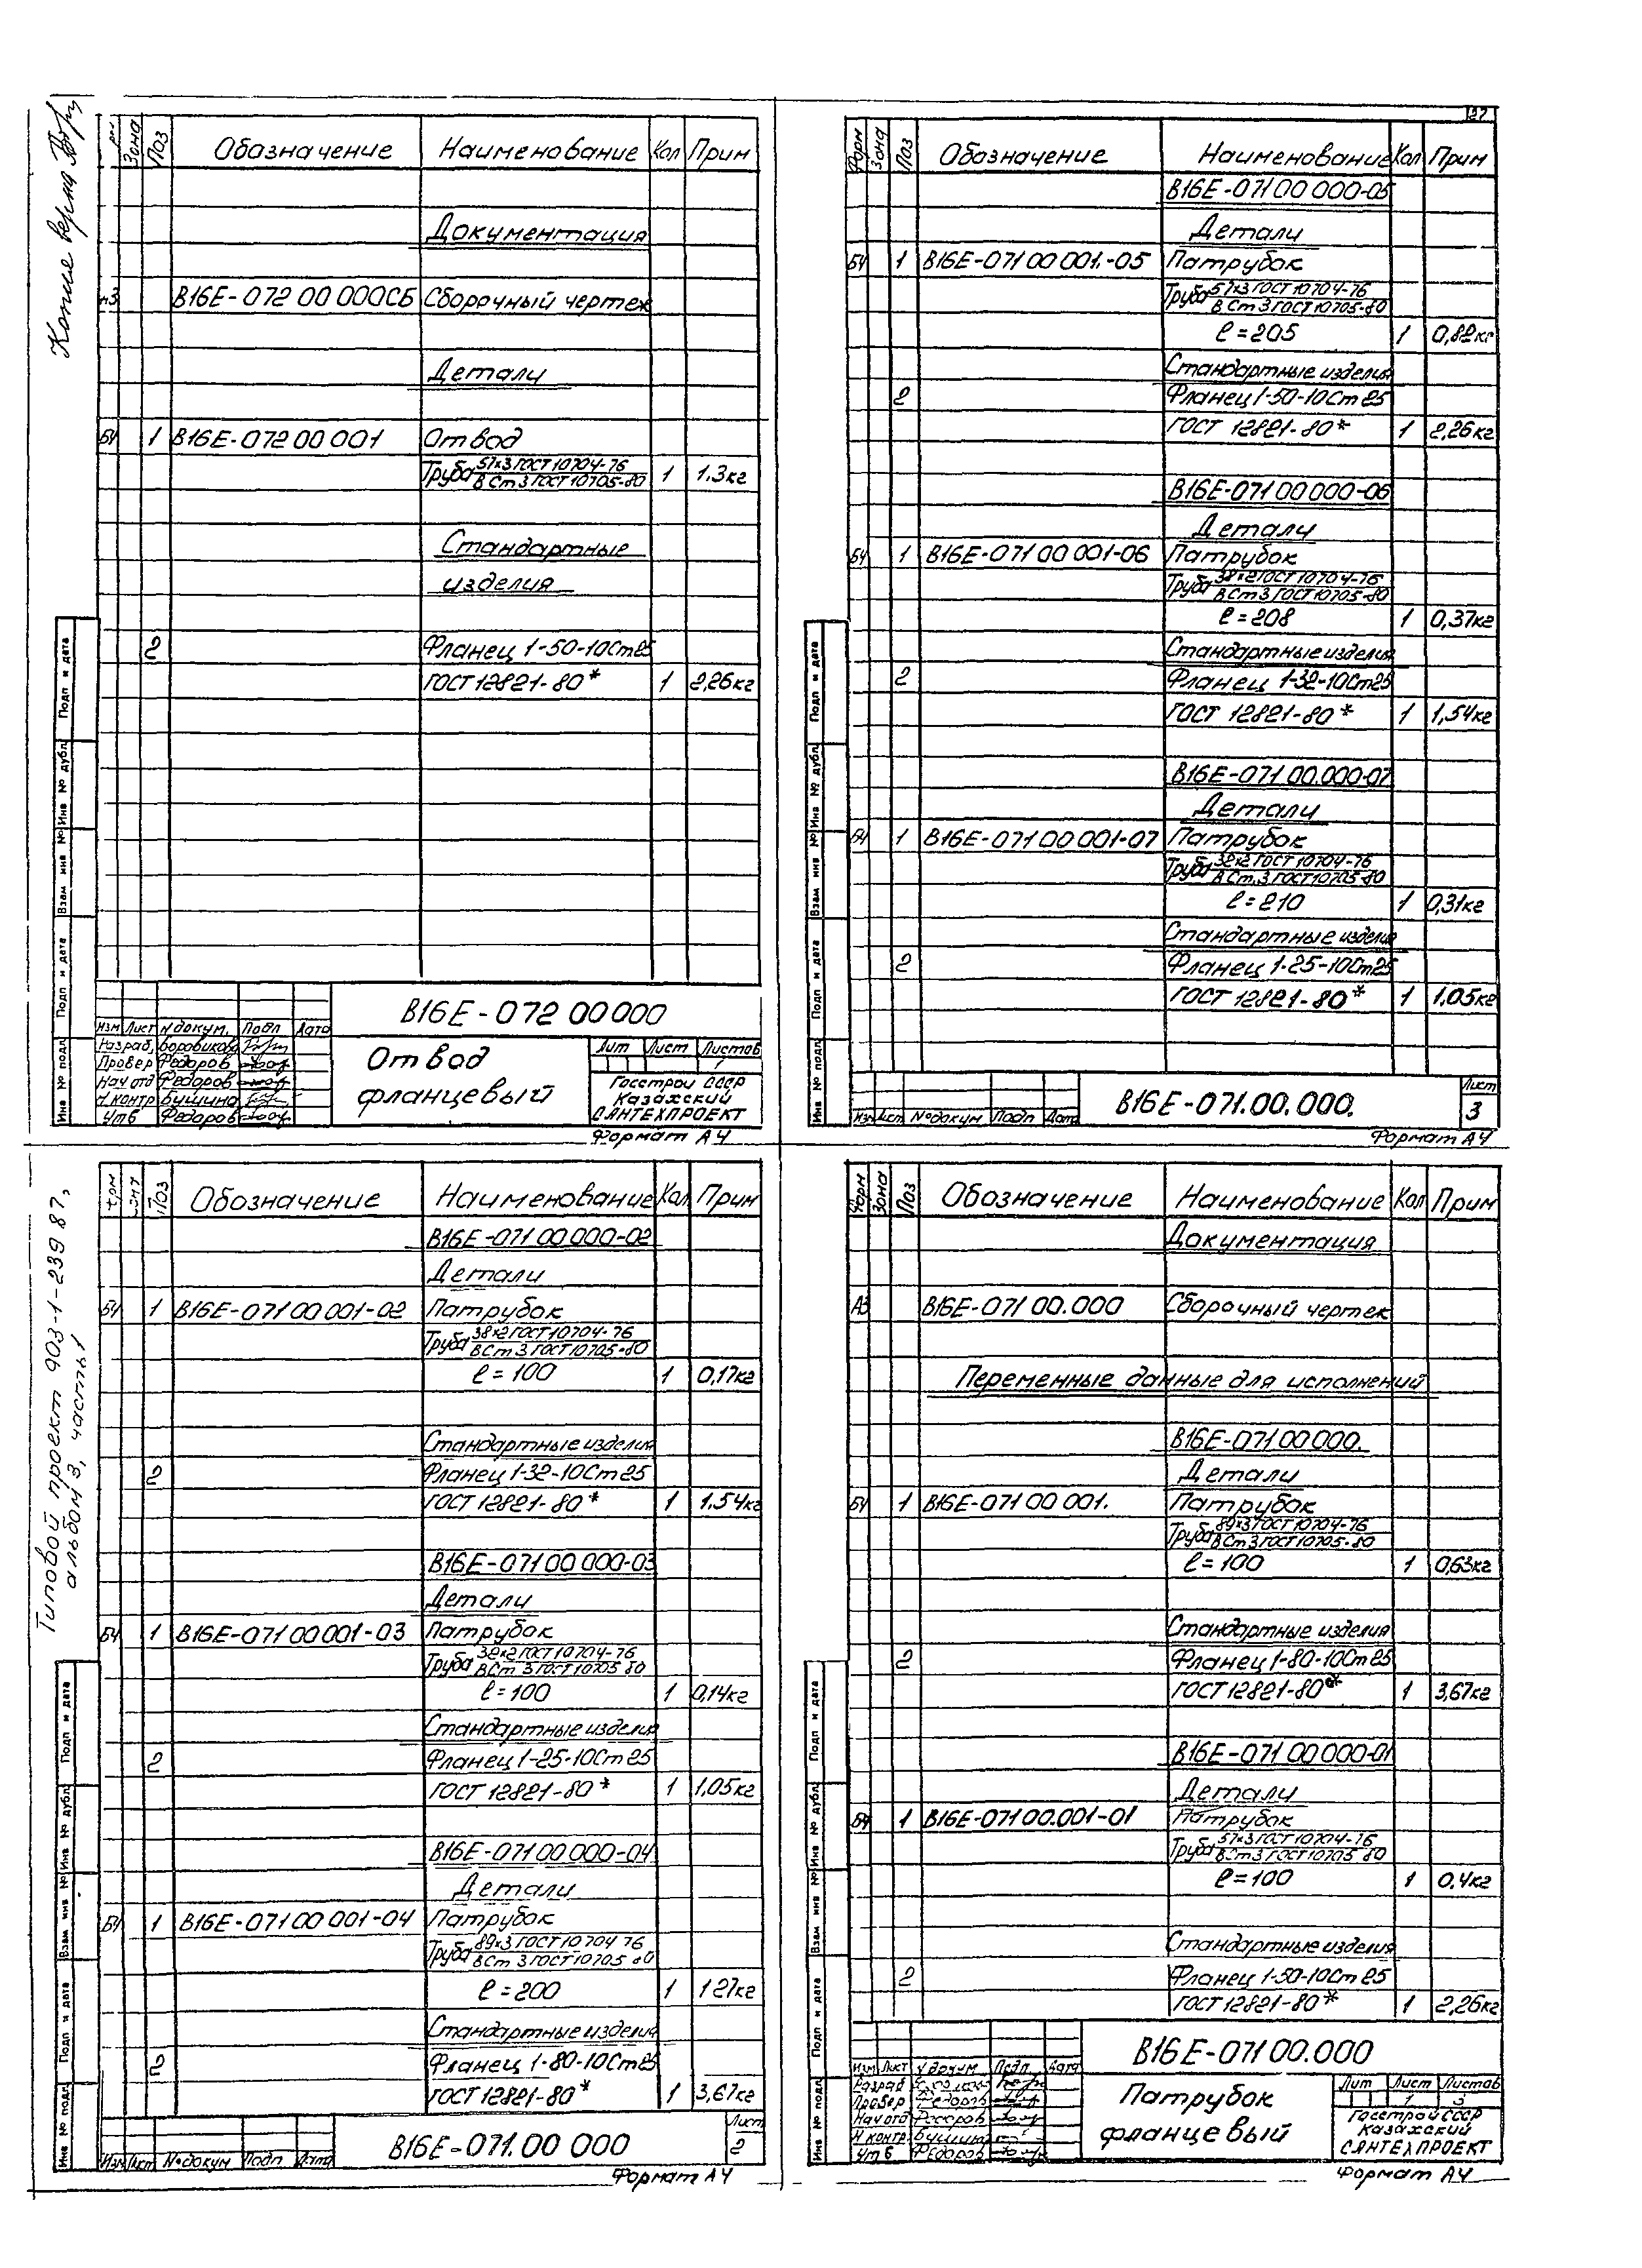 Копие верна
27
Зона Поз Обозначение Наименование Кол Прим
Документация
В16Е-072 00 000СБ Сборочный чертеж
Детали
БЧ 1 В16Е-072 00 001 Отвод
Труба 57×3 ГОСТ 10704-76
В Ст 3 ГОСТ 10705-80 1 1.3кг
Стандартные
изделия
2 Фланец 1-50-10Ст25
ГОСТ 12821-80* 1 2,26кг
Подп и дата
Инв № дубл
Взам инв №
Подп и дата
Инв № подл
В16Е-072 00 000
Изм Лист N докум. Подп Дата
Разраб. Боровикова
Провер Федоров
Нач отд Федоров
Н.контр Бушина
Утв Федоров
Отвод
фланцевый
Лит Лист Листов
1
Госстрой СССР
Казахский
САНТЕХПРОЕКТ
Формат А4
Форм Зона Поз Обозначение Наименование Кол Прим
В16Е-071 00 000-05
Детали
БЧ 1 В16Е-071 00 001.-05 Патрубок
Труба 57×3 ГОСТ 10704-76
В Ст 3 ГОСТ 10705-80
ℓ=205 1 0,82кг
Стандартные изделия
2 Фланец 1-50-10Ст25
ГОСТ 12821-80* 1 2,26кг
В16Е-071 00 000-06
Детали
БЧ 1 В16Е-071 00 001-06 Патрубок
Труба 38×2 ГОСТ 10704-76
В Ст 3 ГОСТ 10705-80
ℓ=208 1 0,37кг
Стандартные изделия
2 Фланец 1-32-10Ст25
ГОСТ 12821-80* 1 1,54кг
В16Е-071 00.000-07
Детали
БЧ 1 В16Е-071 00 001-07 Патрубок
Труба 32×2 ГОСТ 10704-76
В Ст.3 ГОСТ 10705-80
ℓ=210 1 0,31кг
Стандартные изделия
2 Фланец 1-25-10Ст25
ГОСТ 12821-80* 1 1,05кг
Подп и дата
Инв № дубл
Взам инв №
Подп и дата
Инв № подл
Изм Лист №докум Подп Дата
В16Е-071.00.000.
Лист
3
Формат А4
Типовой проект 903-1-239 87,
альбом 3, часть 1
Поз Обозначение Наименование Кол Прим
В16Е-071 00 000-02
Детали
БЧ 1 В16Е-071 00 001-02 Патрубок
Труба 38×2 ГОСТ 10704-76
В Ст 3 ГОСТ 10705-80
ℓ=100 1 0,17кг
Стандартные изделия
2 Фланец 1-32-10Ст25
ГОСТ 12821-80* 1 1.54кг
В16Е-071 00 000-03
Детали
БЧ 1 В16Е-071 00 001-03 Патрубок
Труба 32×2 ГОСТ 10704-76
В Ст 3 ГОСТ 10705 80
ℓ=100 1 0,14кг
Стандартные изделия
2 Фланец 1-25-10Ст25
ГОСТ 12821-80* 1 1,05кг
В16Е-071 00 000-04
Детали
БЧ 1 В16Е-071 00 001-04 Патрубок
Труба 89×3 ГОСТ 10704 76
В Ст 3 ГОСТ 10705 80
ℓ=200 1 1 27кг
Стандартные изделия
2 Фланец 1-80-10Ст25
ГОСТ 12821-80* 1 3,67кг
Подп и дата
Инв № дубл
Взам инв №
Подп и дата
Инв № подл
Изм Лист №докум Подп Дата
В16Е-071.00 000
Лист
2
Формат А4
Форм Зона Поз Обозначение Наименование Кол Прим
Документация
А3 В16Е-071 00.000 Сборочный чертеж
Переменные данные для исполнений
В16Е-071 00 000.
Детали
БЧ 1 В16Е-071 00 001. Патрубок
Труба 89×3 ГОСТ 10704-76
В Ст 3 ГОСТ 10705-80
ℓ=100 1 0,63кг
Стандартные изделия
2 Фланец 1-80-10Ст25
ГОСТ 12821-80* 1 3,67кг
В16Е-071 00 000-01
Детали
БЧ 1 В16Е-071 00.001-01 Патрубок
Труба 57×3 ГОСТ 10704-76
В Ст 3 ГОСТ 10705 80
ℓ=100 1 0.4кг
Стандартные изделия
2 Фланец 1-50-10Ст25
ГОСТ 12821-80* 1 2,26кг
Подп и дата
Инв № дубл
Взам инв №
Подп и дата
Инв № подл
В16Е-071 00.000
Изм Лист N докум Подп Дата
Разраб
Провер Федоров
Нач отд Федоров
Н контр Бушина
Утв Федоров
Патрубок
фланцевый
Лит Лист Листов
1 3
Госстрой СССР
Казахский
САНТЕХПРОЕКТ
Формат А4